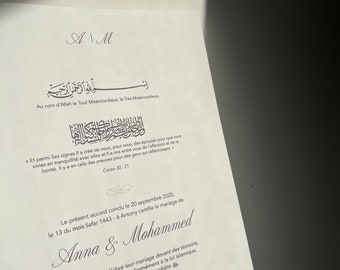 A \ M
بسم الله الرحمن الرحيم
Au nom d'Allah le Tout Miséricordieux, le Très Miséricordieux.
« Et parmi Ses signes Il a créé de vous, pour vous, des épouses pour que vous
viviez en tranquillité avec elles et Il a mis entre vous de l'affection et de la
bonté. Il y a en cela des preuves pour des gens qui réfléchissent. »
Coran 30 : 21
Le présent accord conclu le 20 septembre 2020,
le 13 du mois Safar 1443 - à Antony certifie la mariage de :
Anna & Mohammed
célébré leur mariage devant des témoins,
formément à la loi islamique.